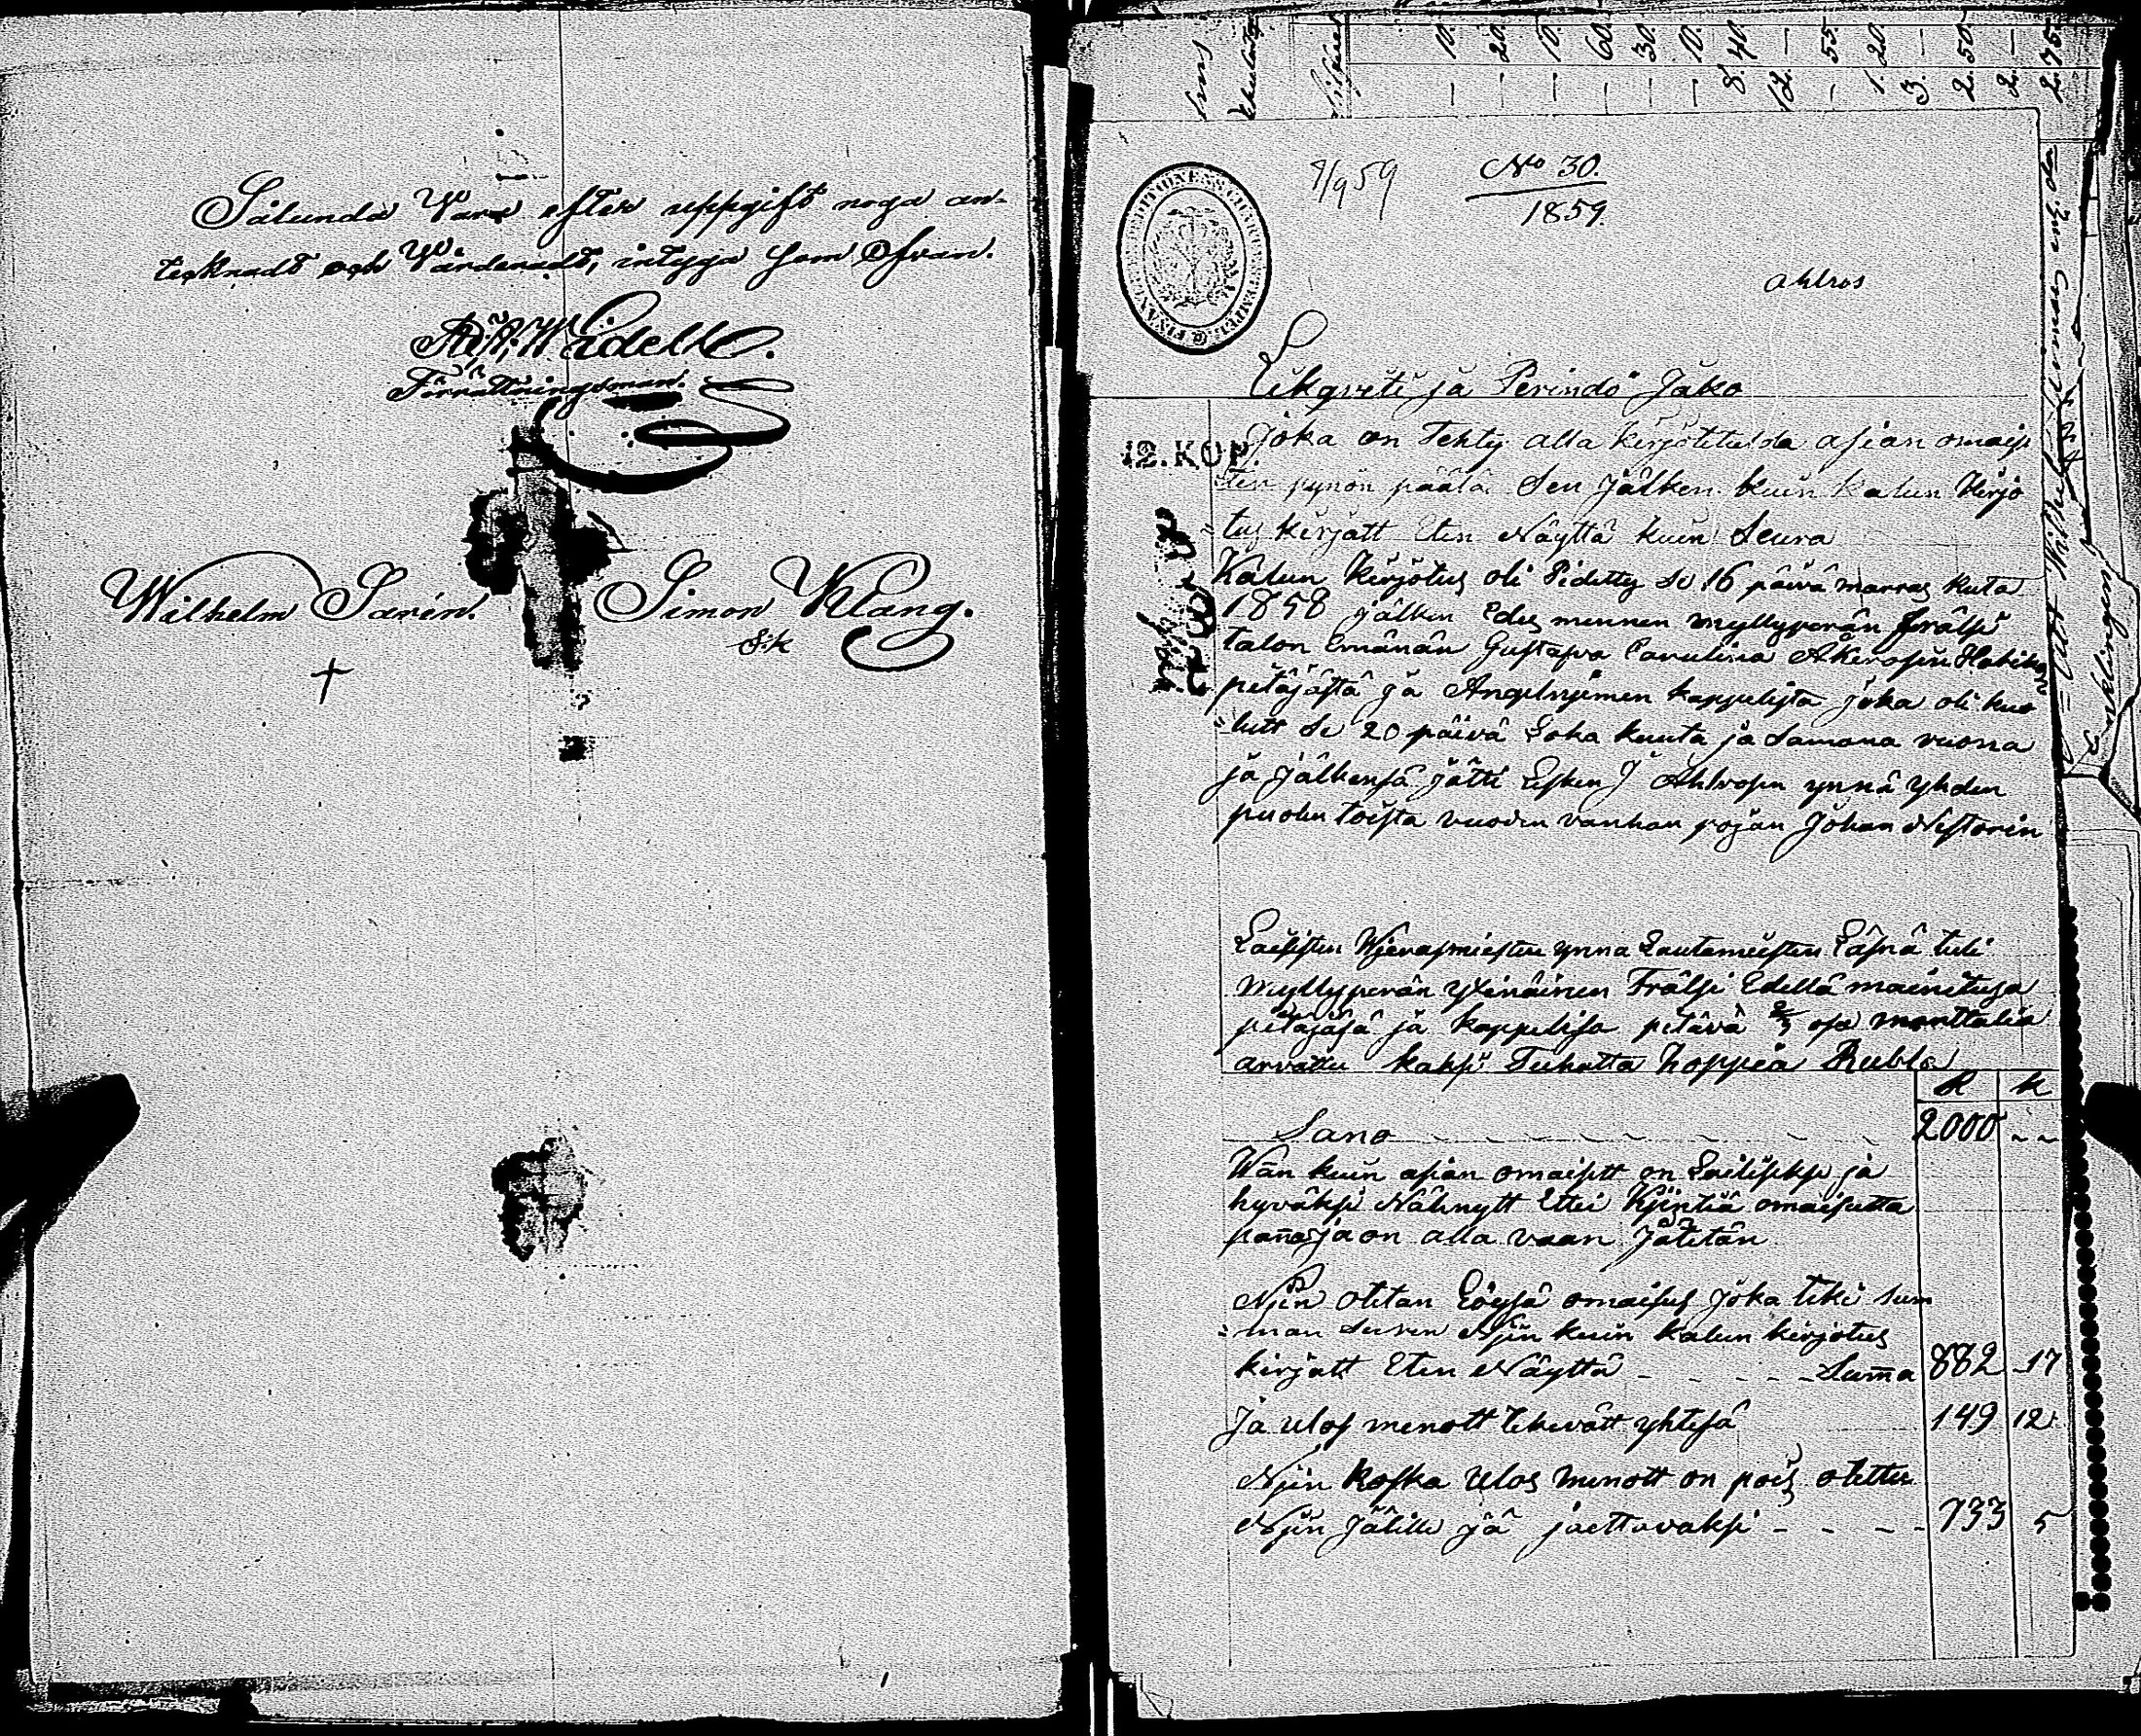 Sålunda Vara efter uppgift noga an-
tecknadt och Värderadt, intyga Som Ofvan.
Widell
Förrättningsman.
Wilhelm Sarin. Simon Klang.
S:k
No 30.
1859.
9/9 59
Ahlros
Leikgreti ja Perindö Jako
12. KOP
Joka on Tehty alla kirjotetulda asian omais
pynön päälä Sen jälken kuin kalun kirjo
= tus kirjatt Eten Näyttä kuin Seura
Kalun kirjotus oli Pidetty se 16 päivä marras kuta
1858 jälken Edes mennen myllyperän Frälsi
talon Emänän Gustava Carolina Åkerosin Haliko
petäjästä ja Angelnjemen kappelista joka oli kuo
= lutt se 20 päivä Loka kuuta ja samana vuona
ja jälkensä jätti Lesken J Ahlrosin ynnä yhden
puolen toista vuoden vanhan pojan Johan Nestorin
Laesisten Wjerasmiesten ynna Lautamiesten Läsnä tuli
Myllyperän Ylinäinen Frälsi Edellä mainitusa
petäjäsä ja kappelisa petävä 2/3 osa manttalia
arvattu kaksi Tuhatta hoppeia Rubla
R k
Sano 2000 - -
Wan kuin asian omaisett on Sieliseksi ja
hyväksi Nähnytt Ettei Kjintiä omaisutta
panna ja on alla vaan Jätetän
Njin otetan Löysä omaisus joka teki sum
= man suren Njin kuin kalun kirjotus
kirjatt Eten Näyttä - - - - - Summa 882 17
Ja ulos menott tekevätt yhtesä 149 12
Njin koska ulos menott on pois otettu
Njin Jälille jä jaettavaksi - - - - 733 5